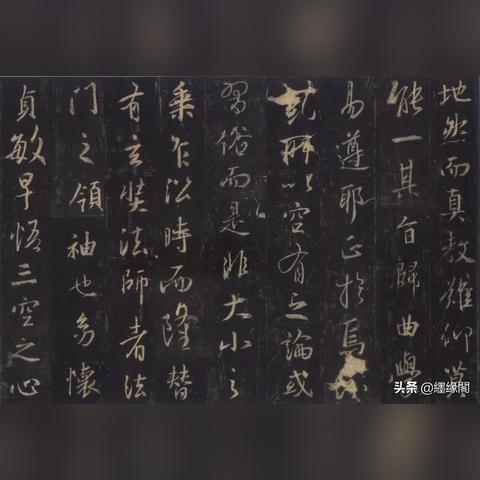 地然而真教難仰莫
能一其旨歸曲學
易遵耶正於焉
糾所以空有之論或
習俗而是非大小之
乘乍沿時而隆替
有玄奘法師者法
門之領袖也幼懷
貞敏早悟三空之心
头条 @纆缘閣